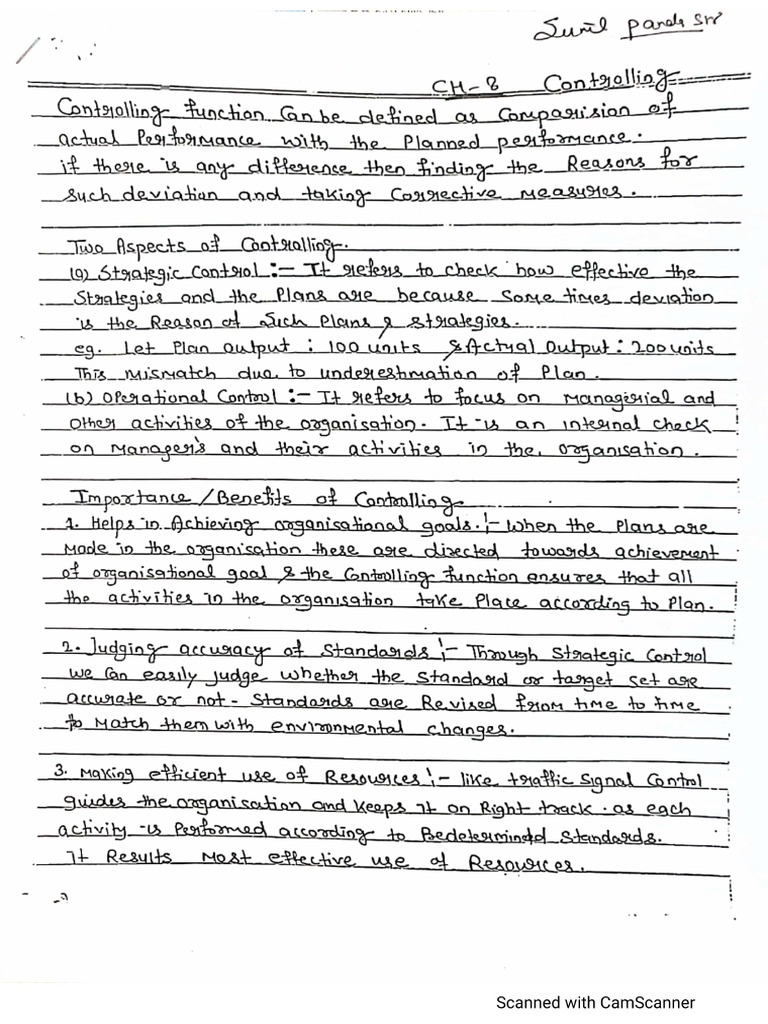 Sunil Panda Sir
CH-8 Controlling
Controlling function Can be defined as Comparision of
actual Performance with the Planned performance.
if there is any difference then finding the Reasons for
such deviation and taking Corrective measures.
Two Aspects of Controlling.
(a) Strategic Control :- It refers to check how effective the
Strategies and the Plans are because Some times deviation
is the Reason of Such Plans & strategies.
eg. Let Plan output : 100 units & Actual Output : 200 units
This mismatch due to underestimation of Plan.
(b) Operational Control :- It refers to focus on Managerial and
other activities of the organisation. It is an internal check
on Manager's and their activities in the organisation.
Importance/Benefits of Controlling
1. Helps in Achieving organisational goals. :- When the Plans are
Made in the organisation these are directed towards achievement
of organisational goal & the Controlling function ensures that all
the activities in the organisation take Place according to Plan.
2. Judging accuracy of Standards :- Through Strategic Control
we Can easily judge whether the Standard or target set are
accurate or not - Standards are Revised from time to time
to Match them with environmental changes.
3. Making efficient use of Resources :- like traffic Signal Control
guides the organisation and keeps it on Right track. as each
activity is Performed according to Standards.
It Results Most effective use of Resources.
Scanned with CamScanner